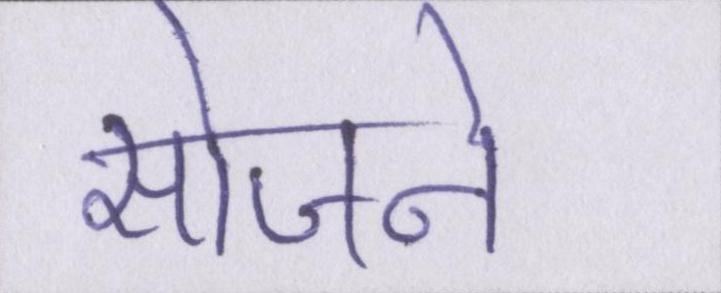 सोजने